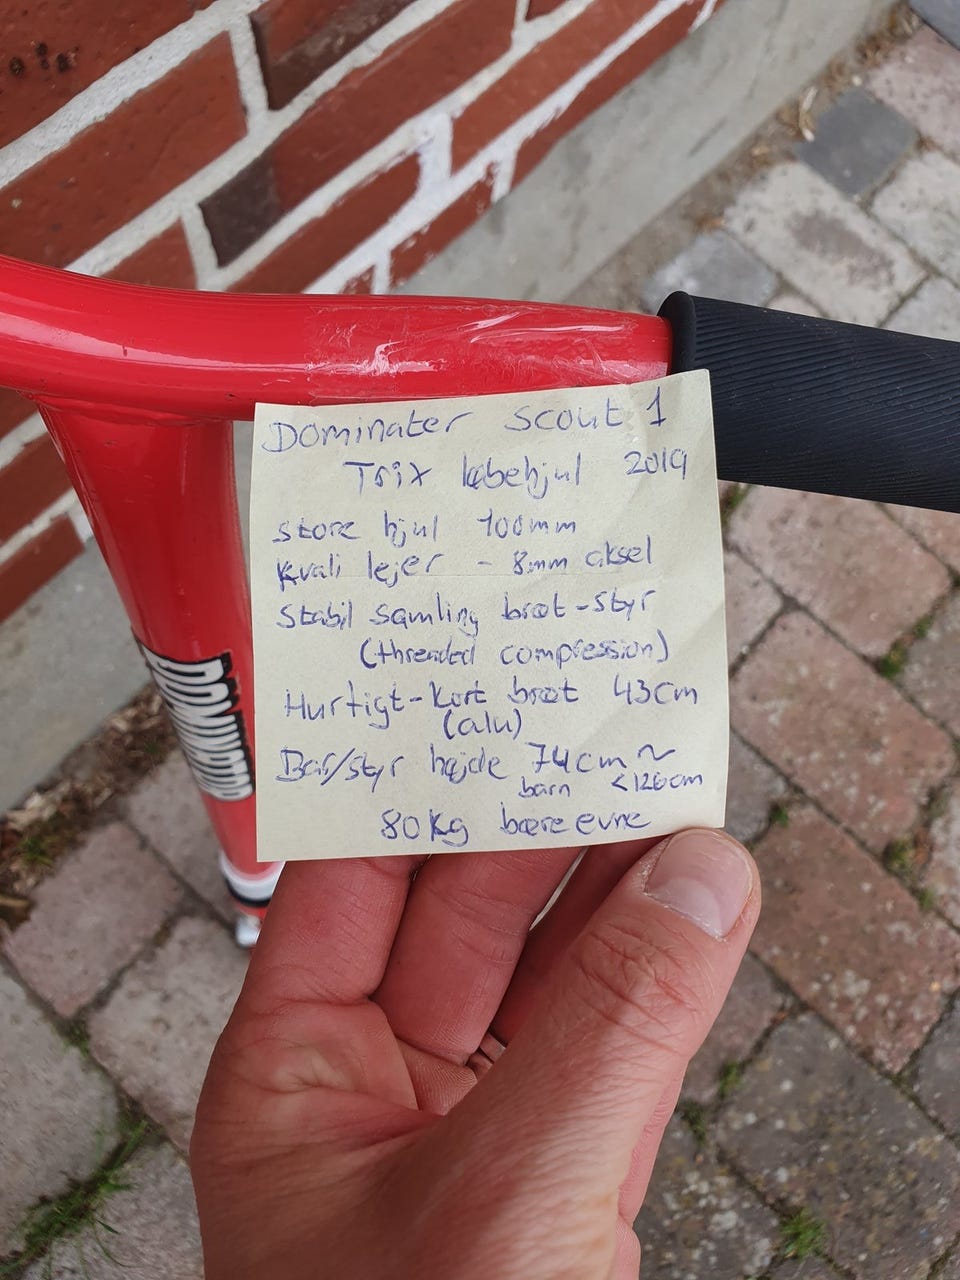 Dominater Scout 1
Trix løbehjul 2019
store hjul 100mm
kvali lejer - 8mm aksel
Stabil samling bræt-styr
(threaded compression)
Hurtigt-kort bræt 43cm
(alu)
Bar/styr højde 74cm ~
barn <126cm
80kg bære evne
DOMINATOR